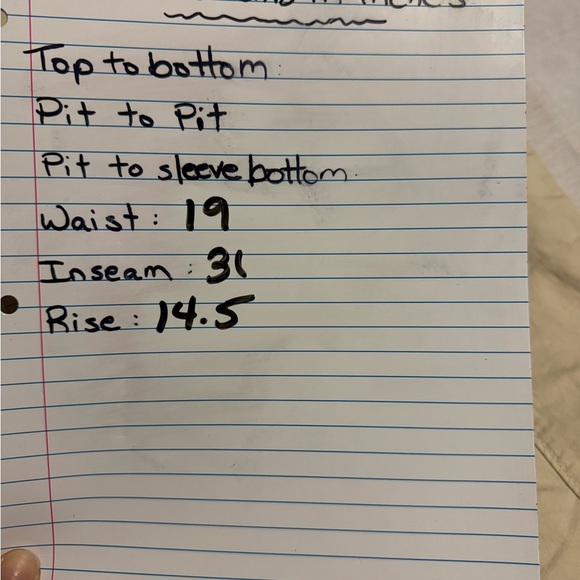 Top to bottom:
Pit to Pit
Pit to sleeve bottom.
Waist: 19
Inseam: 31
Rise: 14.5